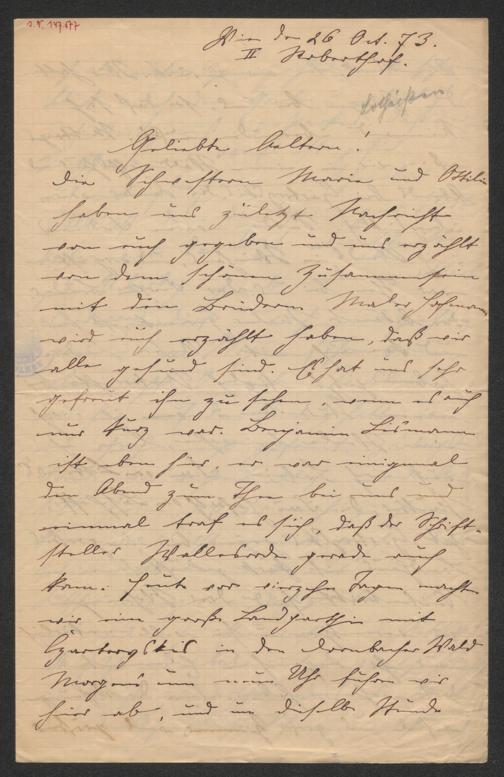 Wien den 26 Oct. 73.
II Robertshof.
Geliebte Aeltern!
die Schwestern Marie und Ottilie
haben uns zuletzt Nachricht
von euch gegeben und uns erzählt
von dem schönen Zusammensein
mit den Brüdern. Maler Hofmann
wird euch erzählt haben, daß wir
alle gesund sind. Es hat uns sehr
gefreut ihn zu sehen, wenn es auch
nur kurz war. Benjamin
ist eben hier, er war einigemal
den Abend zum Thee bei uns und
einmal traf es sich, daß der Schrift-
steller gerade auch
kam. Heute vor vierzehn Tagen machten
wir eine große Landparthie mit
Czartoryskis in den Dornbacher Wald
Morgens um neun Uhr fuhren wir
hier ab, und in dieselbe Stunde